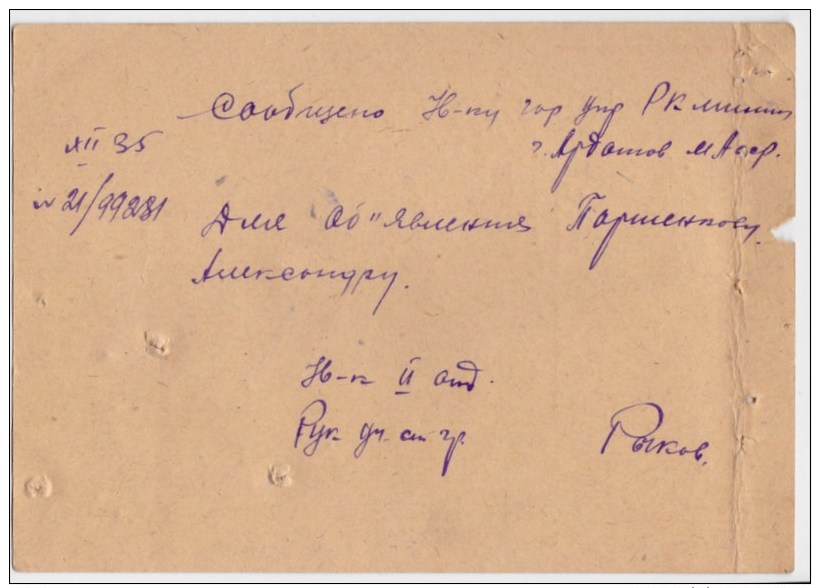 Сообщено Н-ку гор упр РК милиц
г. Ардатов М А обл.
XII 35
№ 21/99231
Для Об"явления Паршенкову
Александру.
Н-к II отд.
Рук уч. ст гр. Рыков.